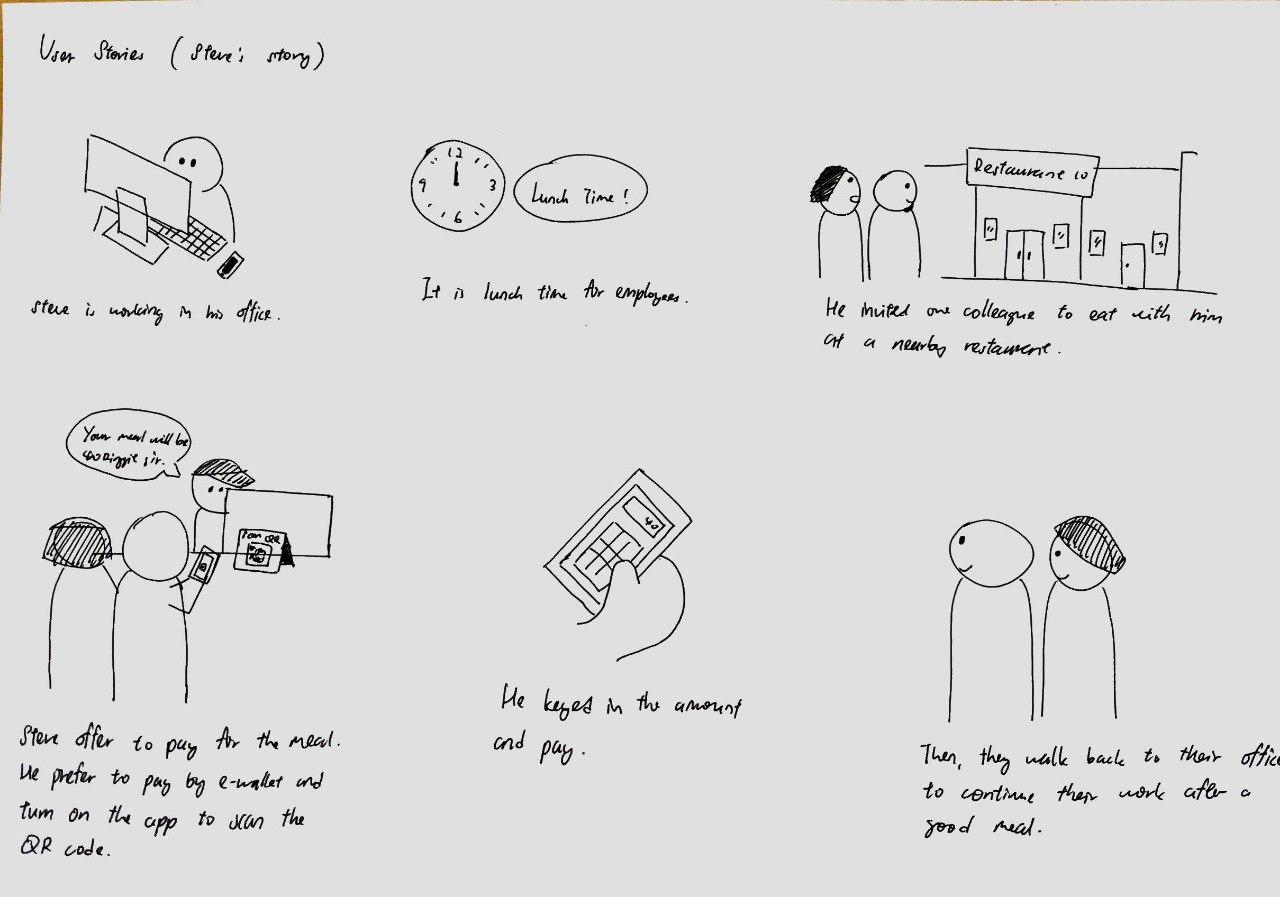 User Stories (Steve's story)
12
3
6
9
Lunch Time!
Restaurant 10
Steve is working in his office.
It is lunch time for employees.
He invited one colleague to eat with him
at a nearby restaurant.
Your meal will be
sir.
QR
40
Steve offer to pay for the meal.
He prefer to pay by e-wallet and
turn on the app to scan the
QR code.
He keyed in the amount
and pay.
Then, they walk back to their office
to continue their work after a
good meal.